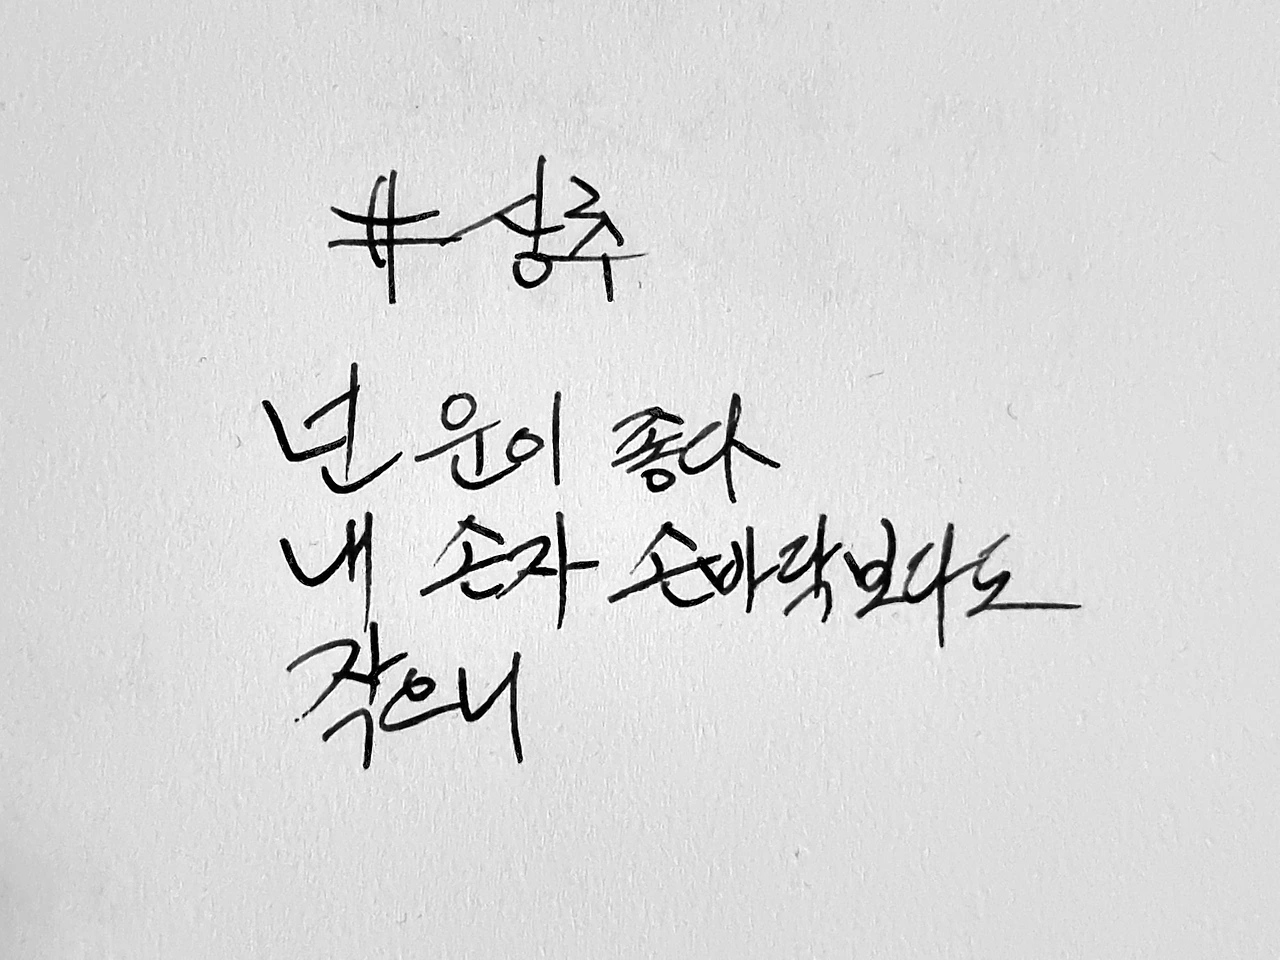 #상추
넌 운이 좋다
내 손자 손바닥보다도
작으니